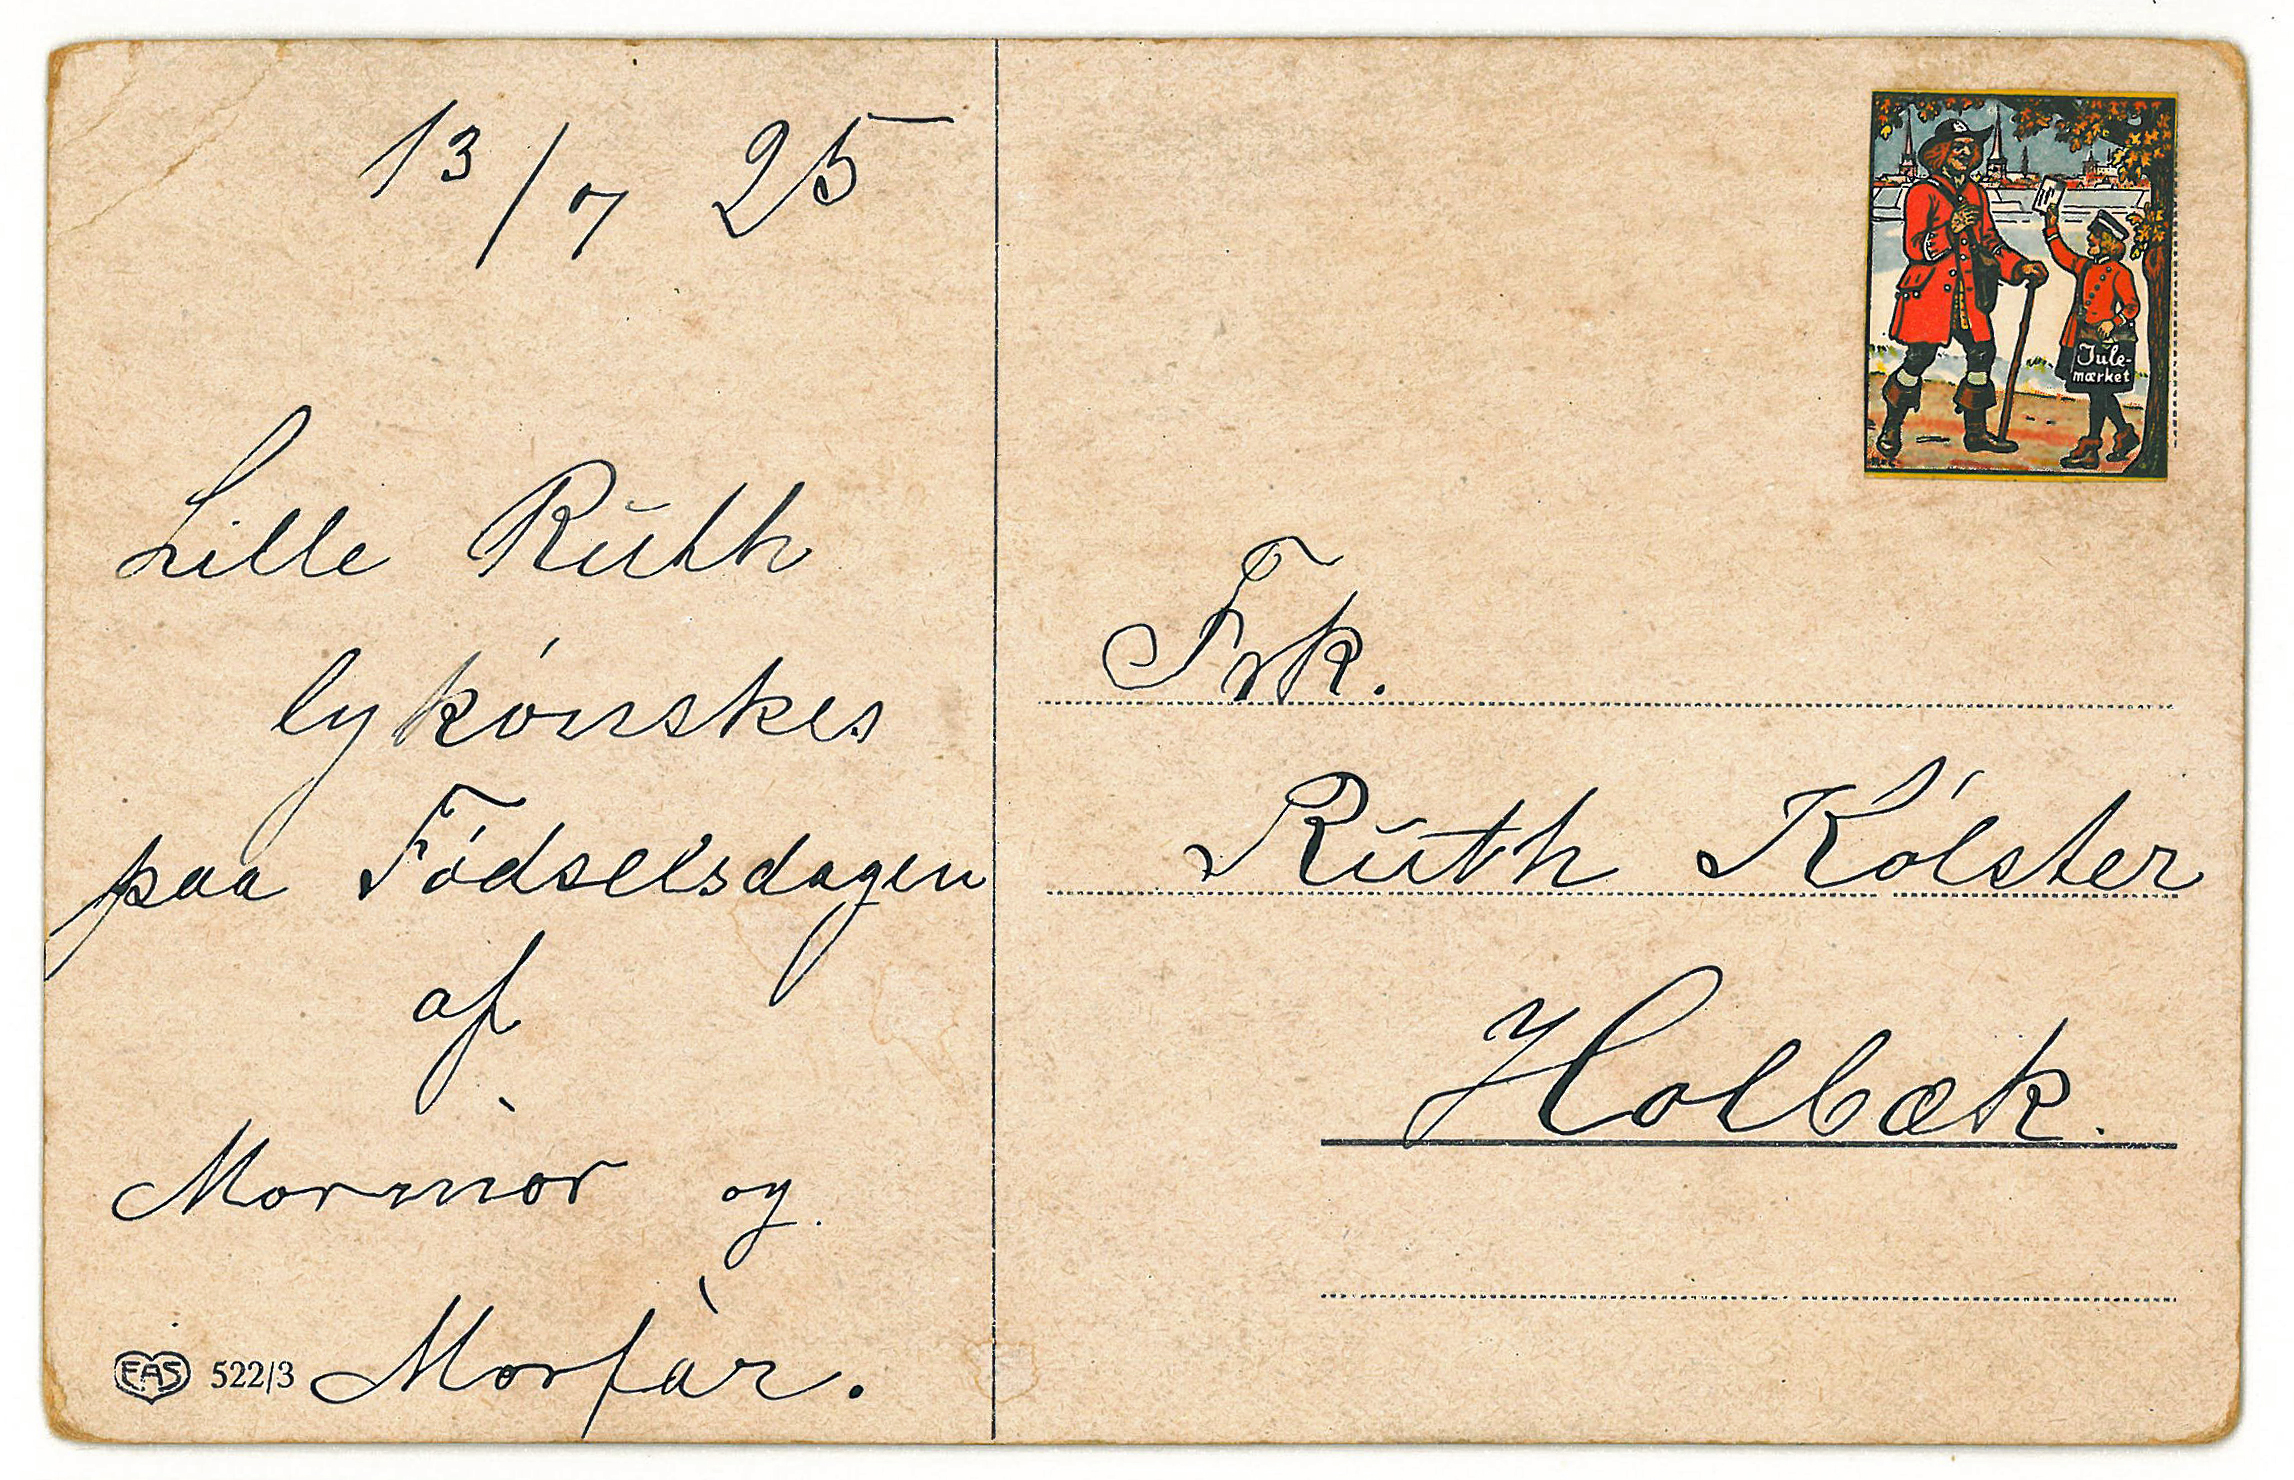 13/7 25
Lille Ruth
lykónskes
paa Fódselsdagen
af
Mormor og
Morfar.
EAS 522/3
Jule-
mærket
Frk.
Ruth Kólster
Holbæk.